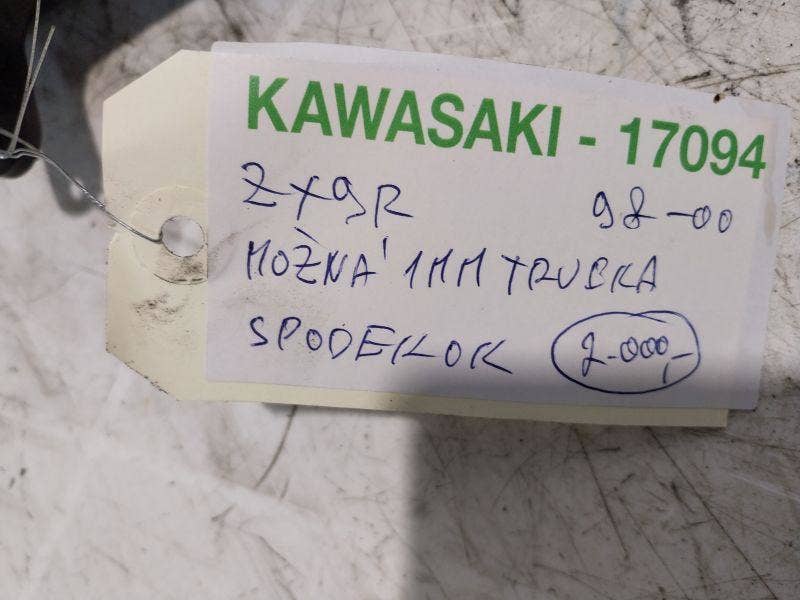 KAWASAKI - 17094
ZX9R 98-00
MOŽNÁ 1MM TRUBKA
SPODEK OK 2.000,-